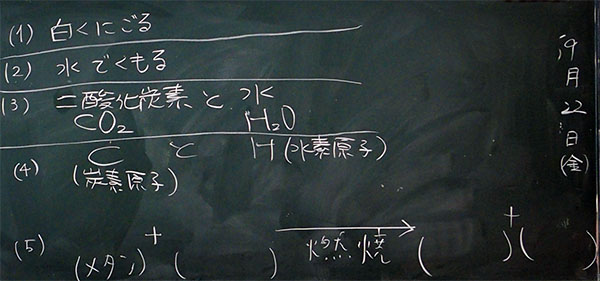 (1) 白くにごる
(2) 水でくもる
(3) 二酸化炭素と水
CO₂ H₂O
(4) C と H(水素原子)
(炭素原子)
(5) (メタン) + ( ) 燃焼→ ( ) + ( )
9月22日(金)